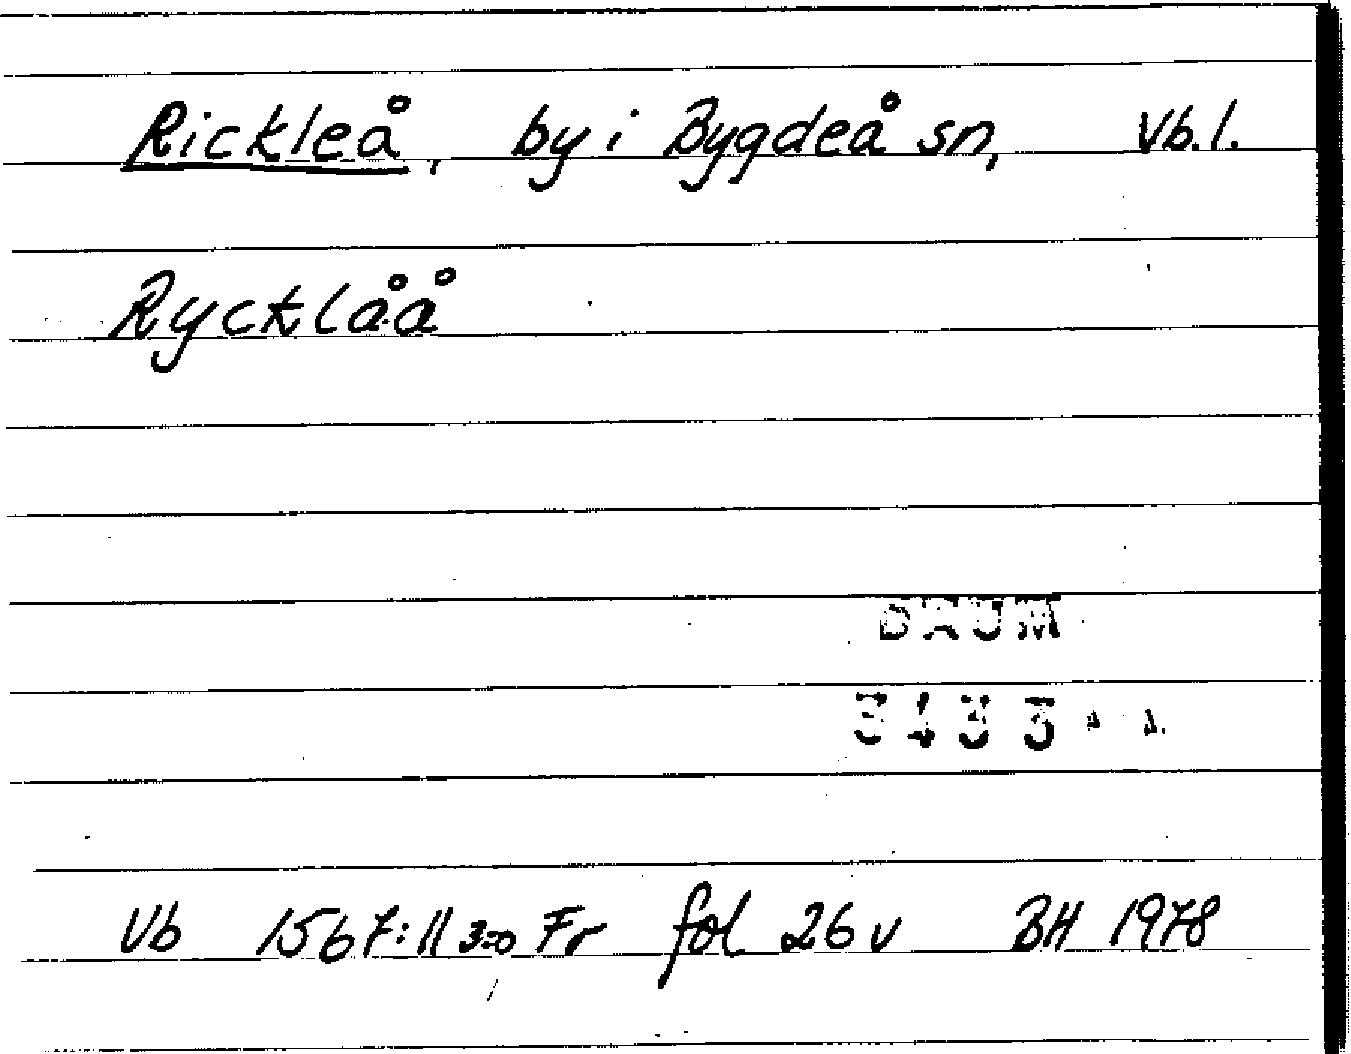 Rickleå, by i Bygdeå sn, Vb.l.
Rycklåå
DAUM
3433
Vb 1567:11 Fr fol 26 v BH 1978